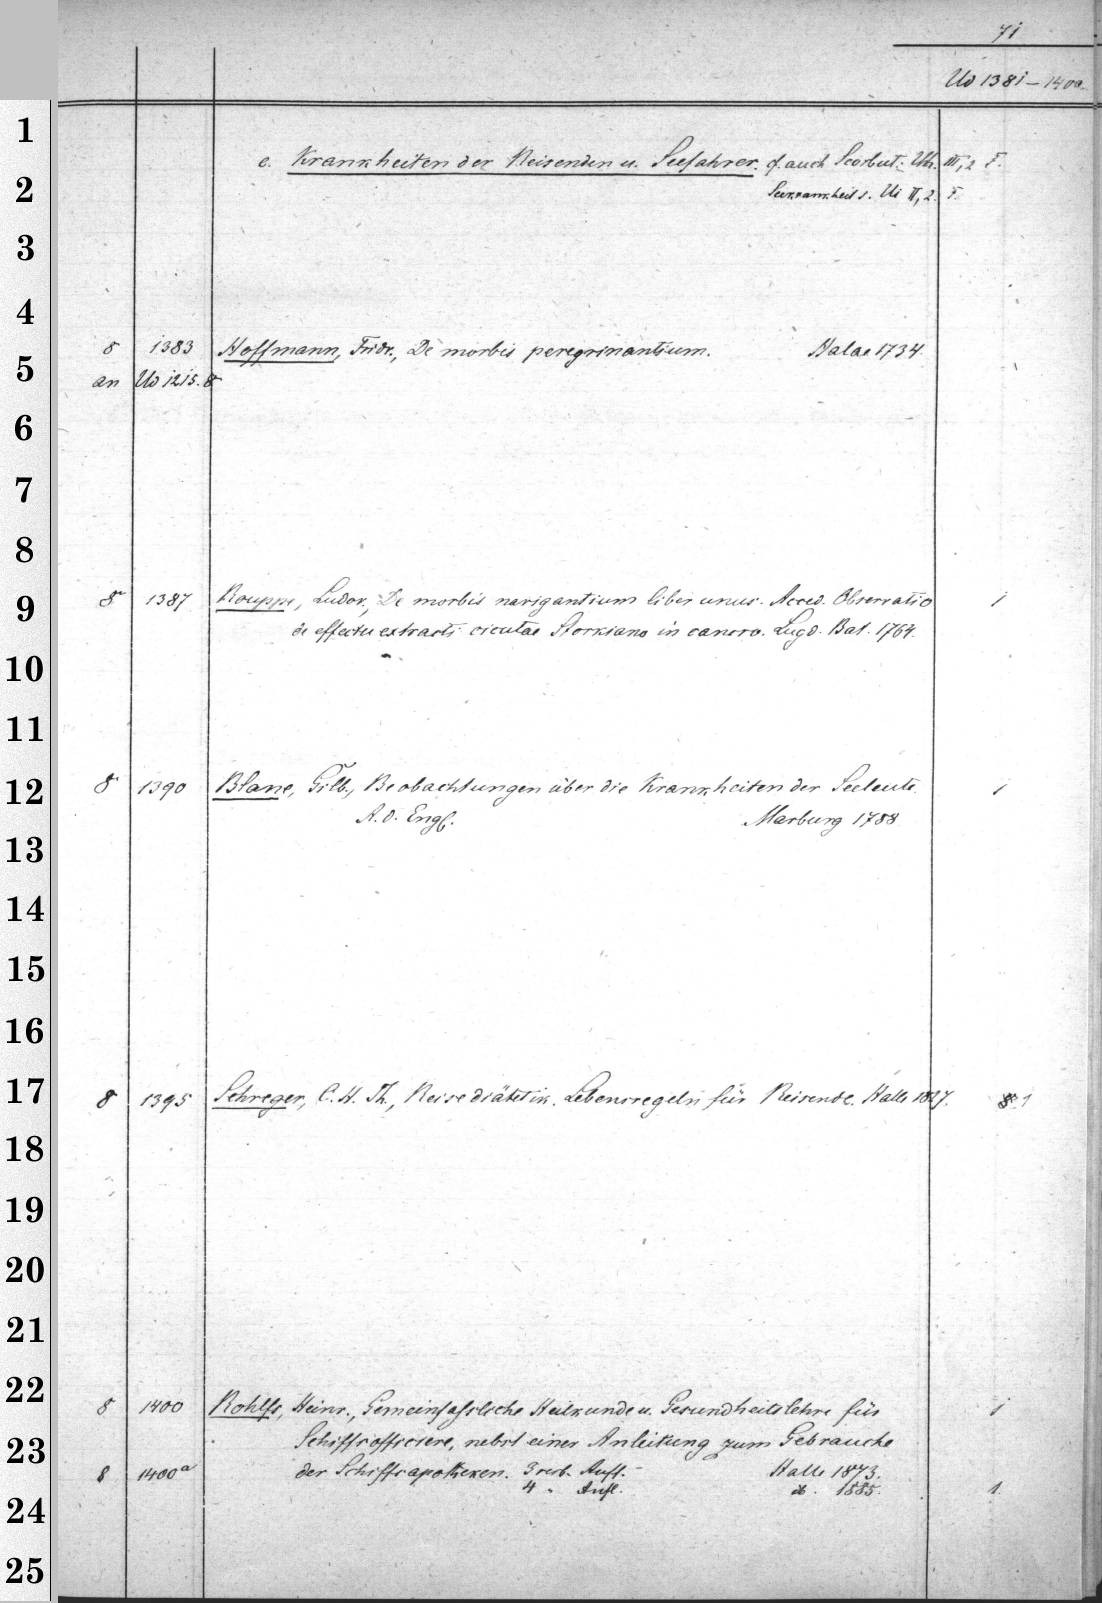 71
Ud 1381–1400a
1
2
3
4
5
6
7
8
9
10
11
12
13
14
15
16
17
18
19
20
21
22
23
24
25
e. Krankheiten der Reisenden u. Seefahrer. cf. auch Scorbut: Uh. III, 2 F.
Seekrankheit s. Ui II, 2. F.
8 1383 Hoffmann, Fridr., De morbis peregrinantium. Halae 1734.
an Ud 1215. 8
8 1387 Rouppe, Ludov., De morbis navigantium liber unus. Acced. Observatio 1
de effectu extracti cicutae Storkiano in cancro. Lugd. Bat. 1764.
8 1390 Blane, Gilb., Beobachtungen über die Krankheiten der Seeleute. 1
A. d. Engl. Marburg 1788
8 1395 Schreger, C. H. Th., Reisediätetik. Lebensregeln für Reisende. Halle 1827. 1
8 1400 Rohlfs, Heinr., Gemeinfassliche Heilkunde u. Gesundheitslehre für 1
Schiffsofficiere, nebst einer Anleitung zum Gebrauche
8 1400a der Schiffsapotheken. 3 verb. Aufl. Halle 1873.
4 " Aufl. ib. 1885. 1